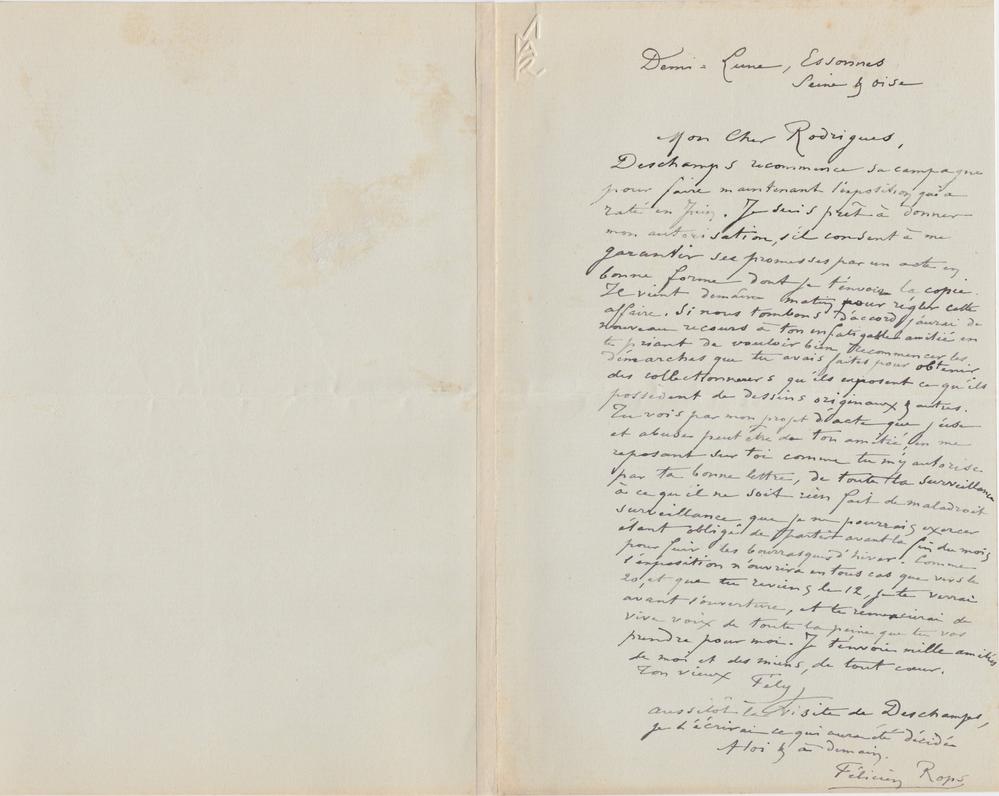 Demi-Lune, Essonnes
Seine & Oise
Mon Cher Rodrigues,
Deschamps recommence sa campagne
pour faire maintenant l'exposition qui a
raté en Juin. Je suis prêt à donner
mon autorisation, s'il consent à me
garantir ses promesses par un acte en
bonne forme dont je t'envoie la copie.
Il vient demain matin pour régler cette
affaire. Si nous tombons d'accord j'aurai de
nouveau recours à ton infatigable amitié en
te priant de vouloir bien recommencer les
démarches que tu avais faites pour obtenir
des collectionneurs qu'ils exposent ce qu'ils
possèdent de dessins originaux & autres.
Tu vois par mon projet d'acte que j'use
et abuse peut être de ton amitié, en me
reposant sur toi comme tu m'y autorise
par ta bonne lettre, de toute la surveillance
à ce qu'il ne soit rien fait de maladroit
surveillance que je ne pourrais exercer
étant obligé de partir avant la fin du mois
pour fuir les bourrasques d'hiver. Comme
l'exposition n'ouvrira en tous cas que vers le
20, et que tu reviens le 12, je te verrai
avant l'ouverture, et te remercierai de
vive voix de toute la peine que tu vas
prendre pour moi. Je t'envoie mille amitiés
de moi et des miens, de tout cœur.
Ton vieux Fély
aussitôt la visite de Deschamps,
je t'écrirai ce qui aura été décidé
A toi & à demain.
Félicien Rops